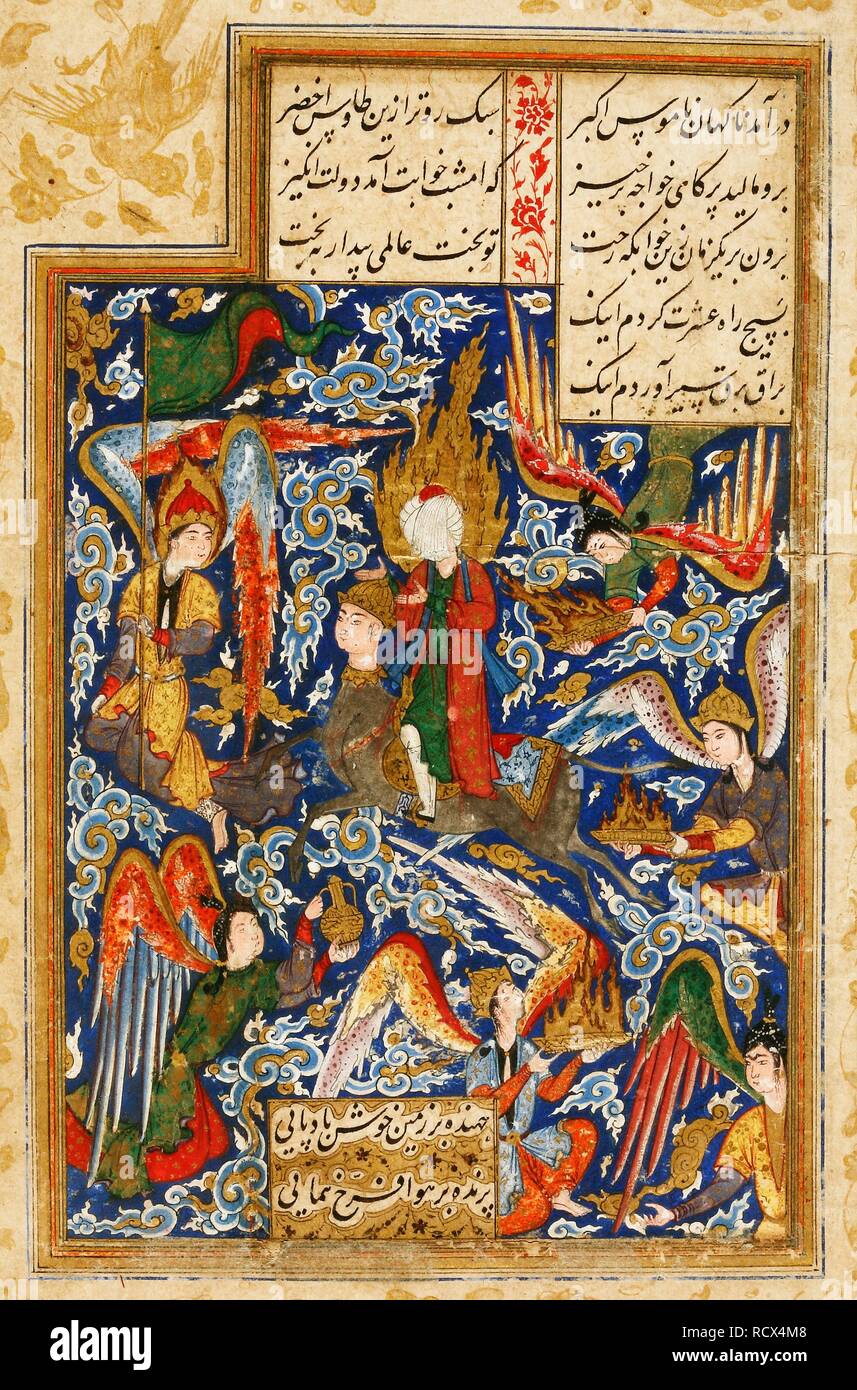 درآمد ناکهان ناموس اکبر سبک روتر ازین طاوس اخضر
برو مالید پر کای خواجه برخیز که امشب خوابت آمد دولت انکیز
برون بر یکزمان زین خوابکه رخت تو بخت عالمی بیدار به بخت
بسیج راه عشرت کردم اینک
براق برق سیر آوردم اینک
جهنده بر زمین خوش بادپایی
پرنده بر هوا فرخ همایی
alamy
Image ID: RCX4M8
www.alamy.com